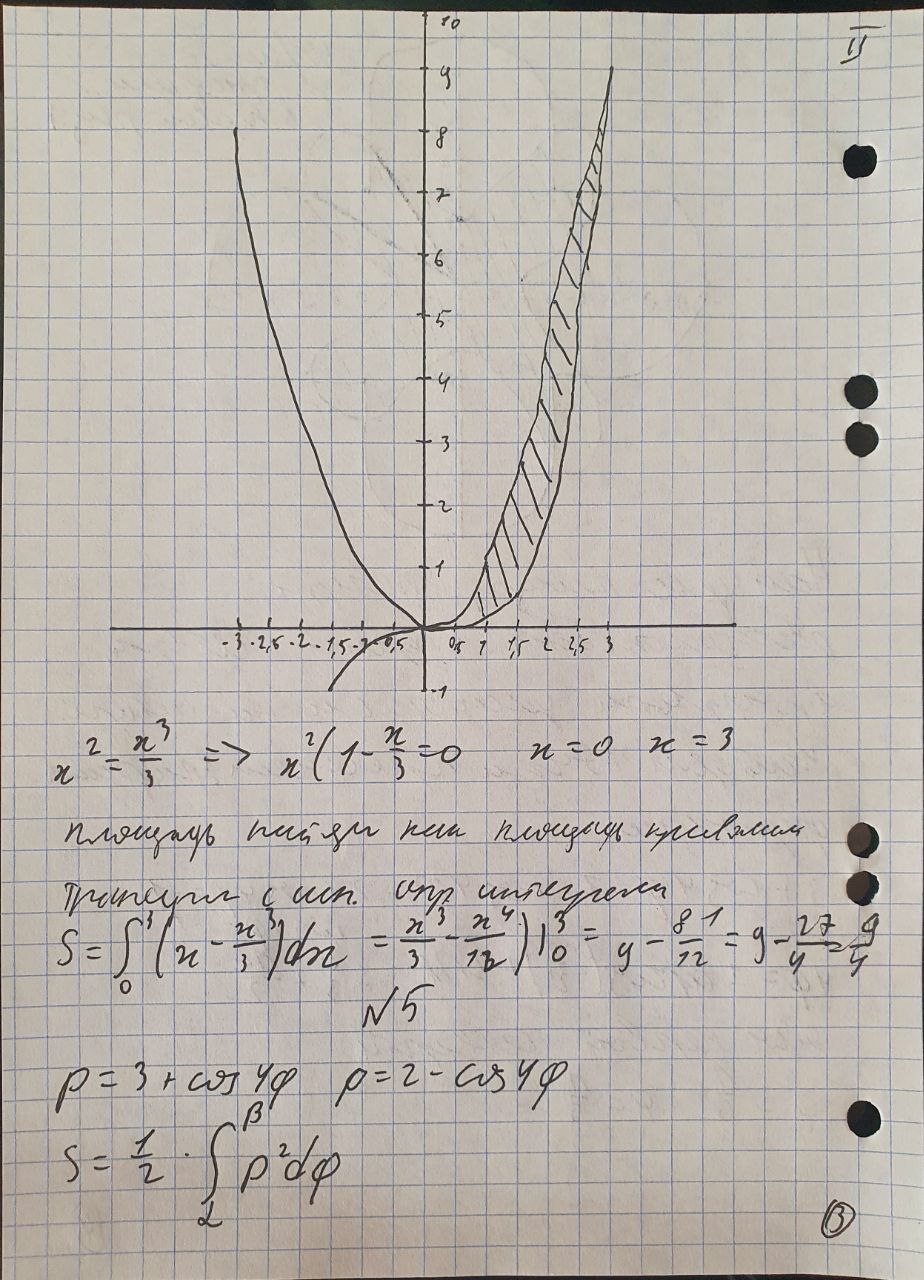 II
10
9
8
7
6
5
4
3
2
1
-3 -2,5 -2 -1,5 -1 -0,5 0,5 1 1,5 2 2,5 3
-1
x² = x³/3 => x²(1 - x/3 = 0 x = 0 x = 3
Площадь найдём как площадь криволин
Трапеции с исп. опр интеграла
S = ∫₀³ (x - x³/3)dx = x³/3 - x⁴/12)|₀³ = 9 - 81/12 = 9 - 27/4 = 9/4
№5
ρ = 3 + cos4φ ρ = 2 - cos4φ
S = 1/2 · ∫_α^β ρ²dφ
3